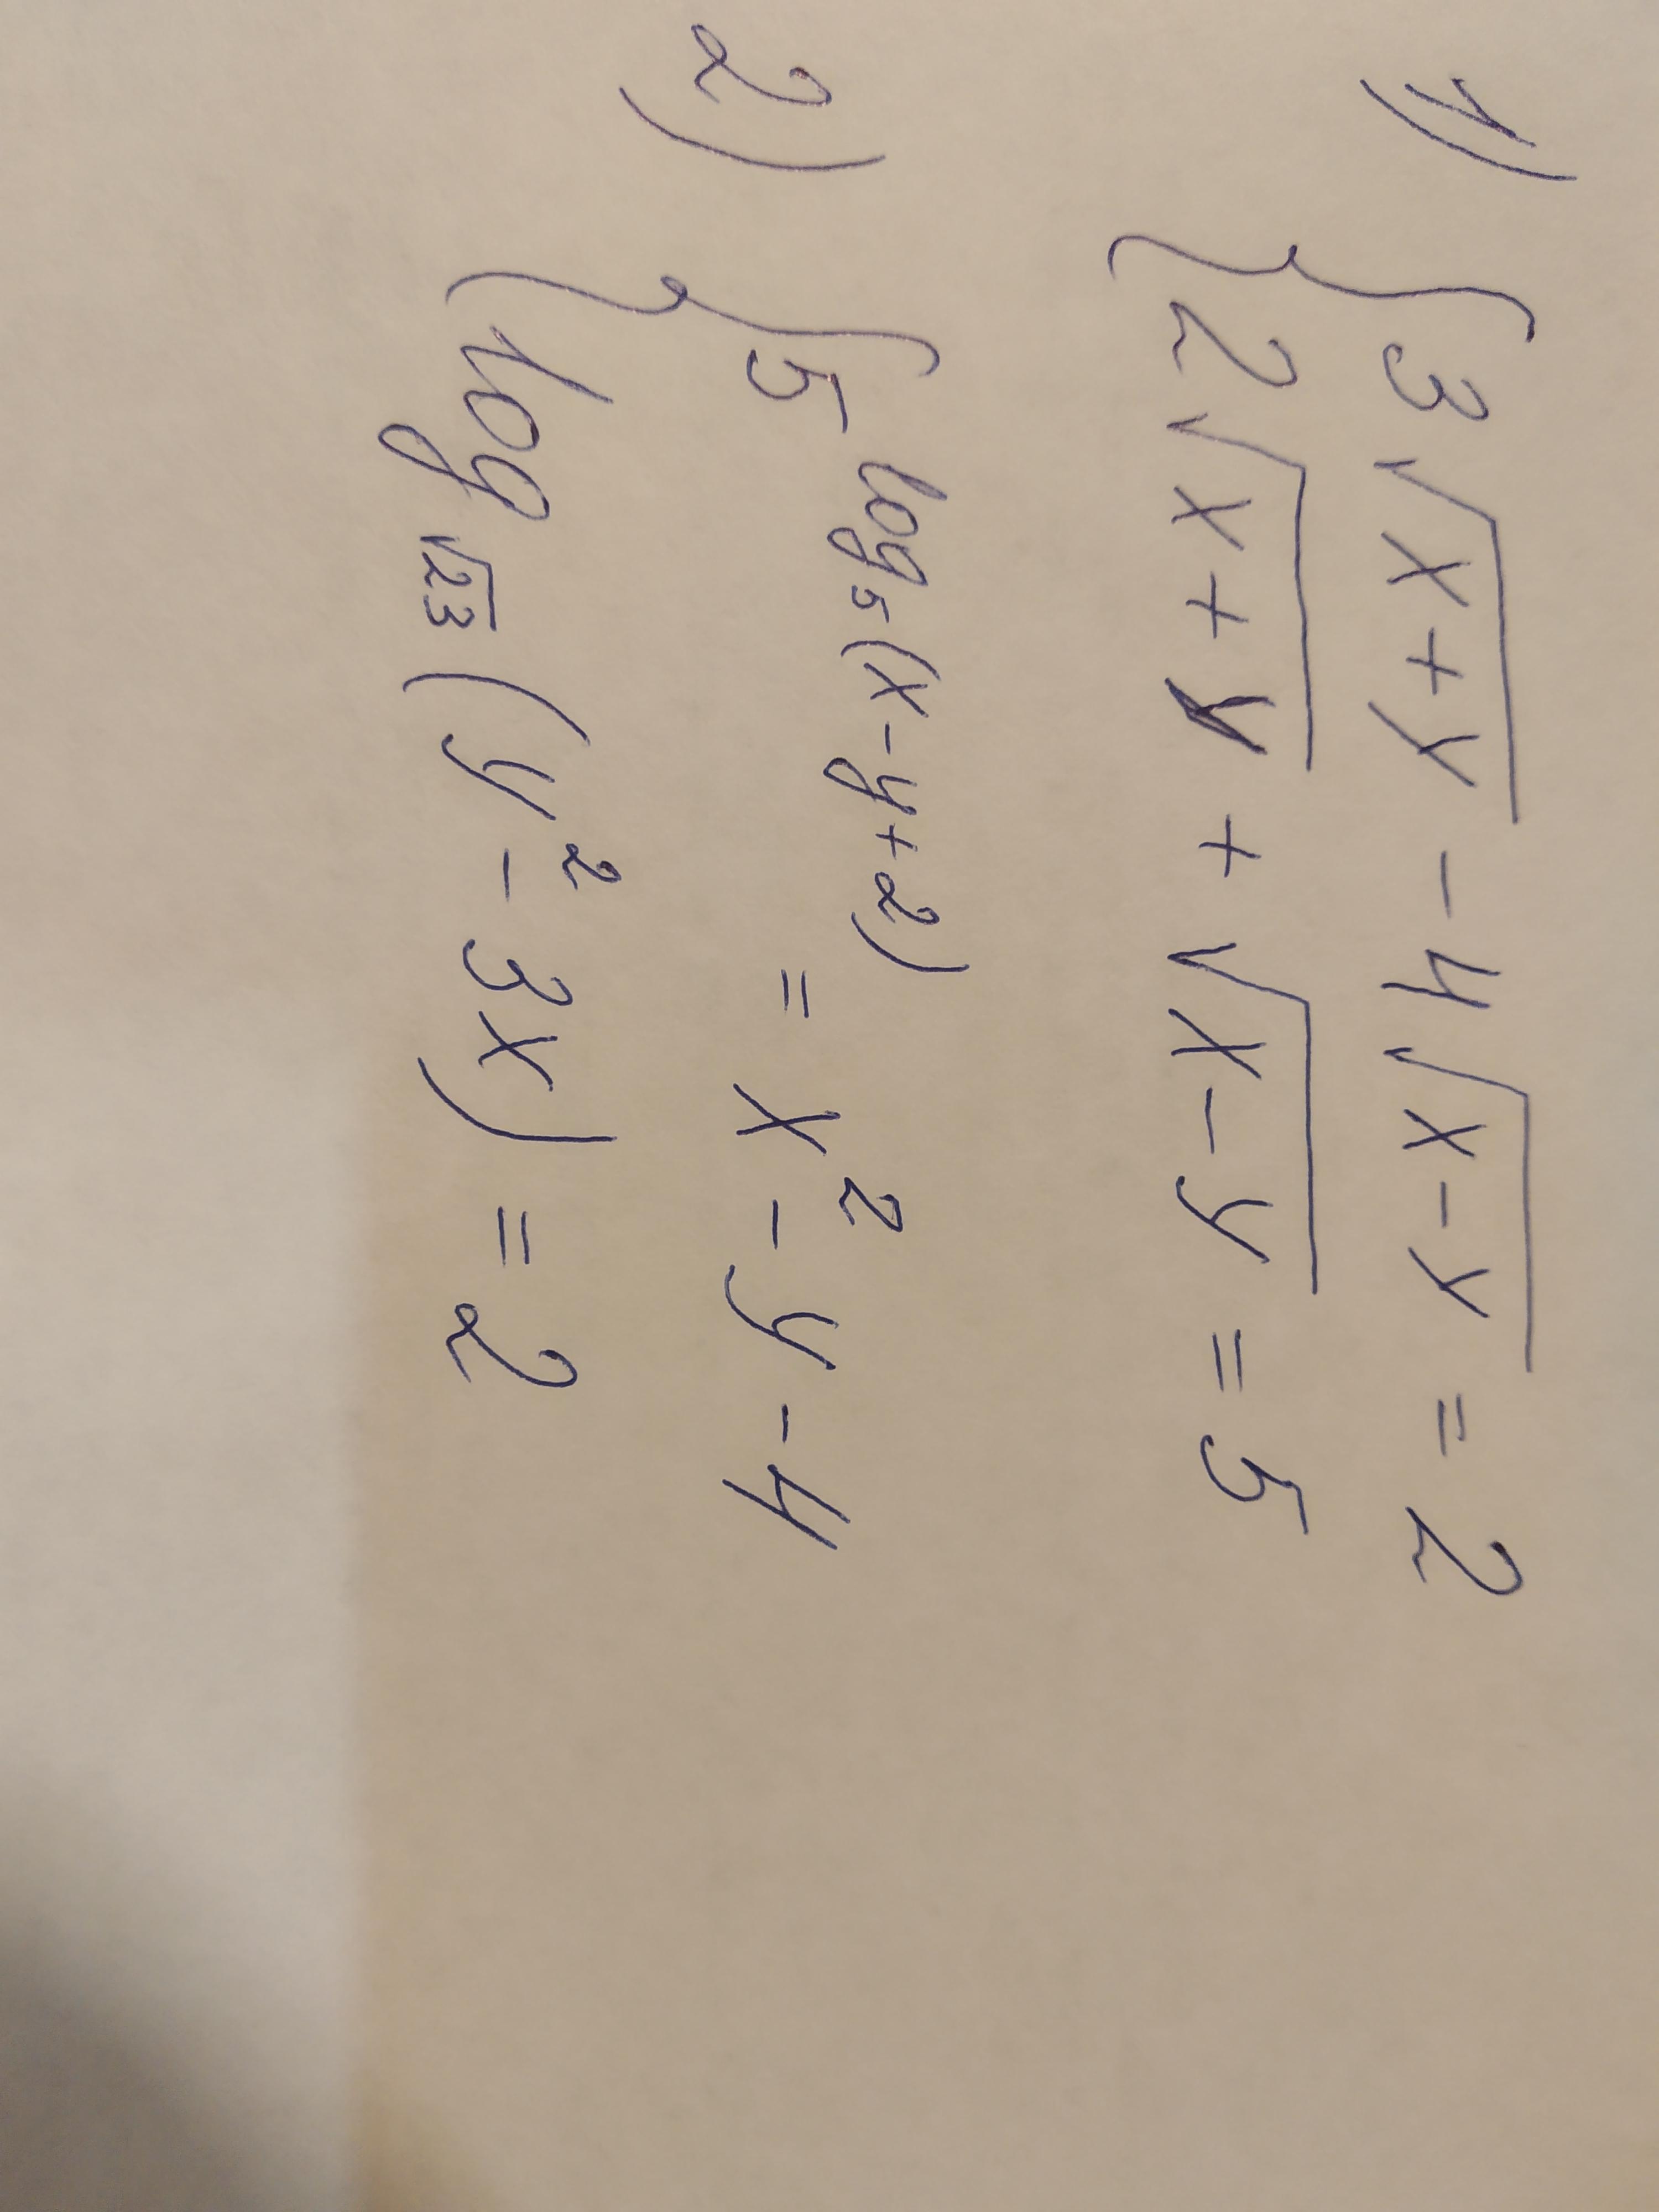 1) { 3√(x+y) - 4√(x-y) = 2
2√(x+y) + √(x-y) = 5
2) { 5^(log₅(x-y+2)) = x² - y - 4
log_√23 (y² - 3x) = 2